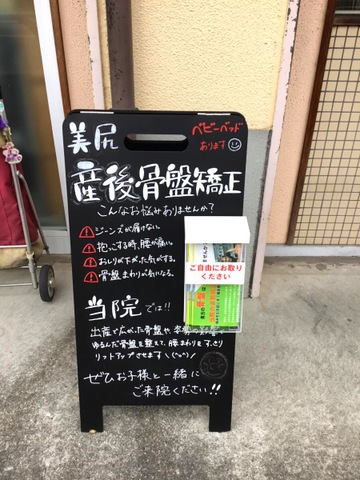 美尻
ベビーベッド
あります
産後骨盤矯正
こんなお悩みありませんか?
ジーンズが履けない。
抱っこする時、腰が痛い。
おしりが下がった気がする。
骨盤まわりが気になる。
ご自由にお取り
ください
当院では!!
出産で広がった骨盤や、
ゆるんだ骨盤を整えて、腰まわりをスッキリ
リフトアップさせます\(^o^)/
ぜひお子様と一緒に
ご来院ください!!